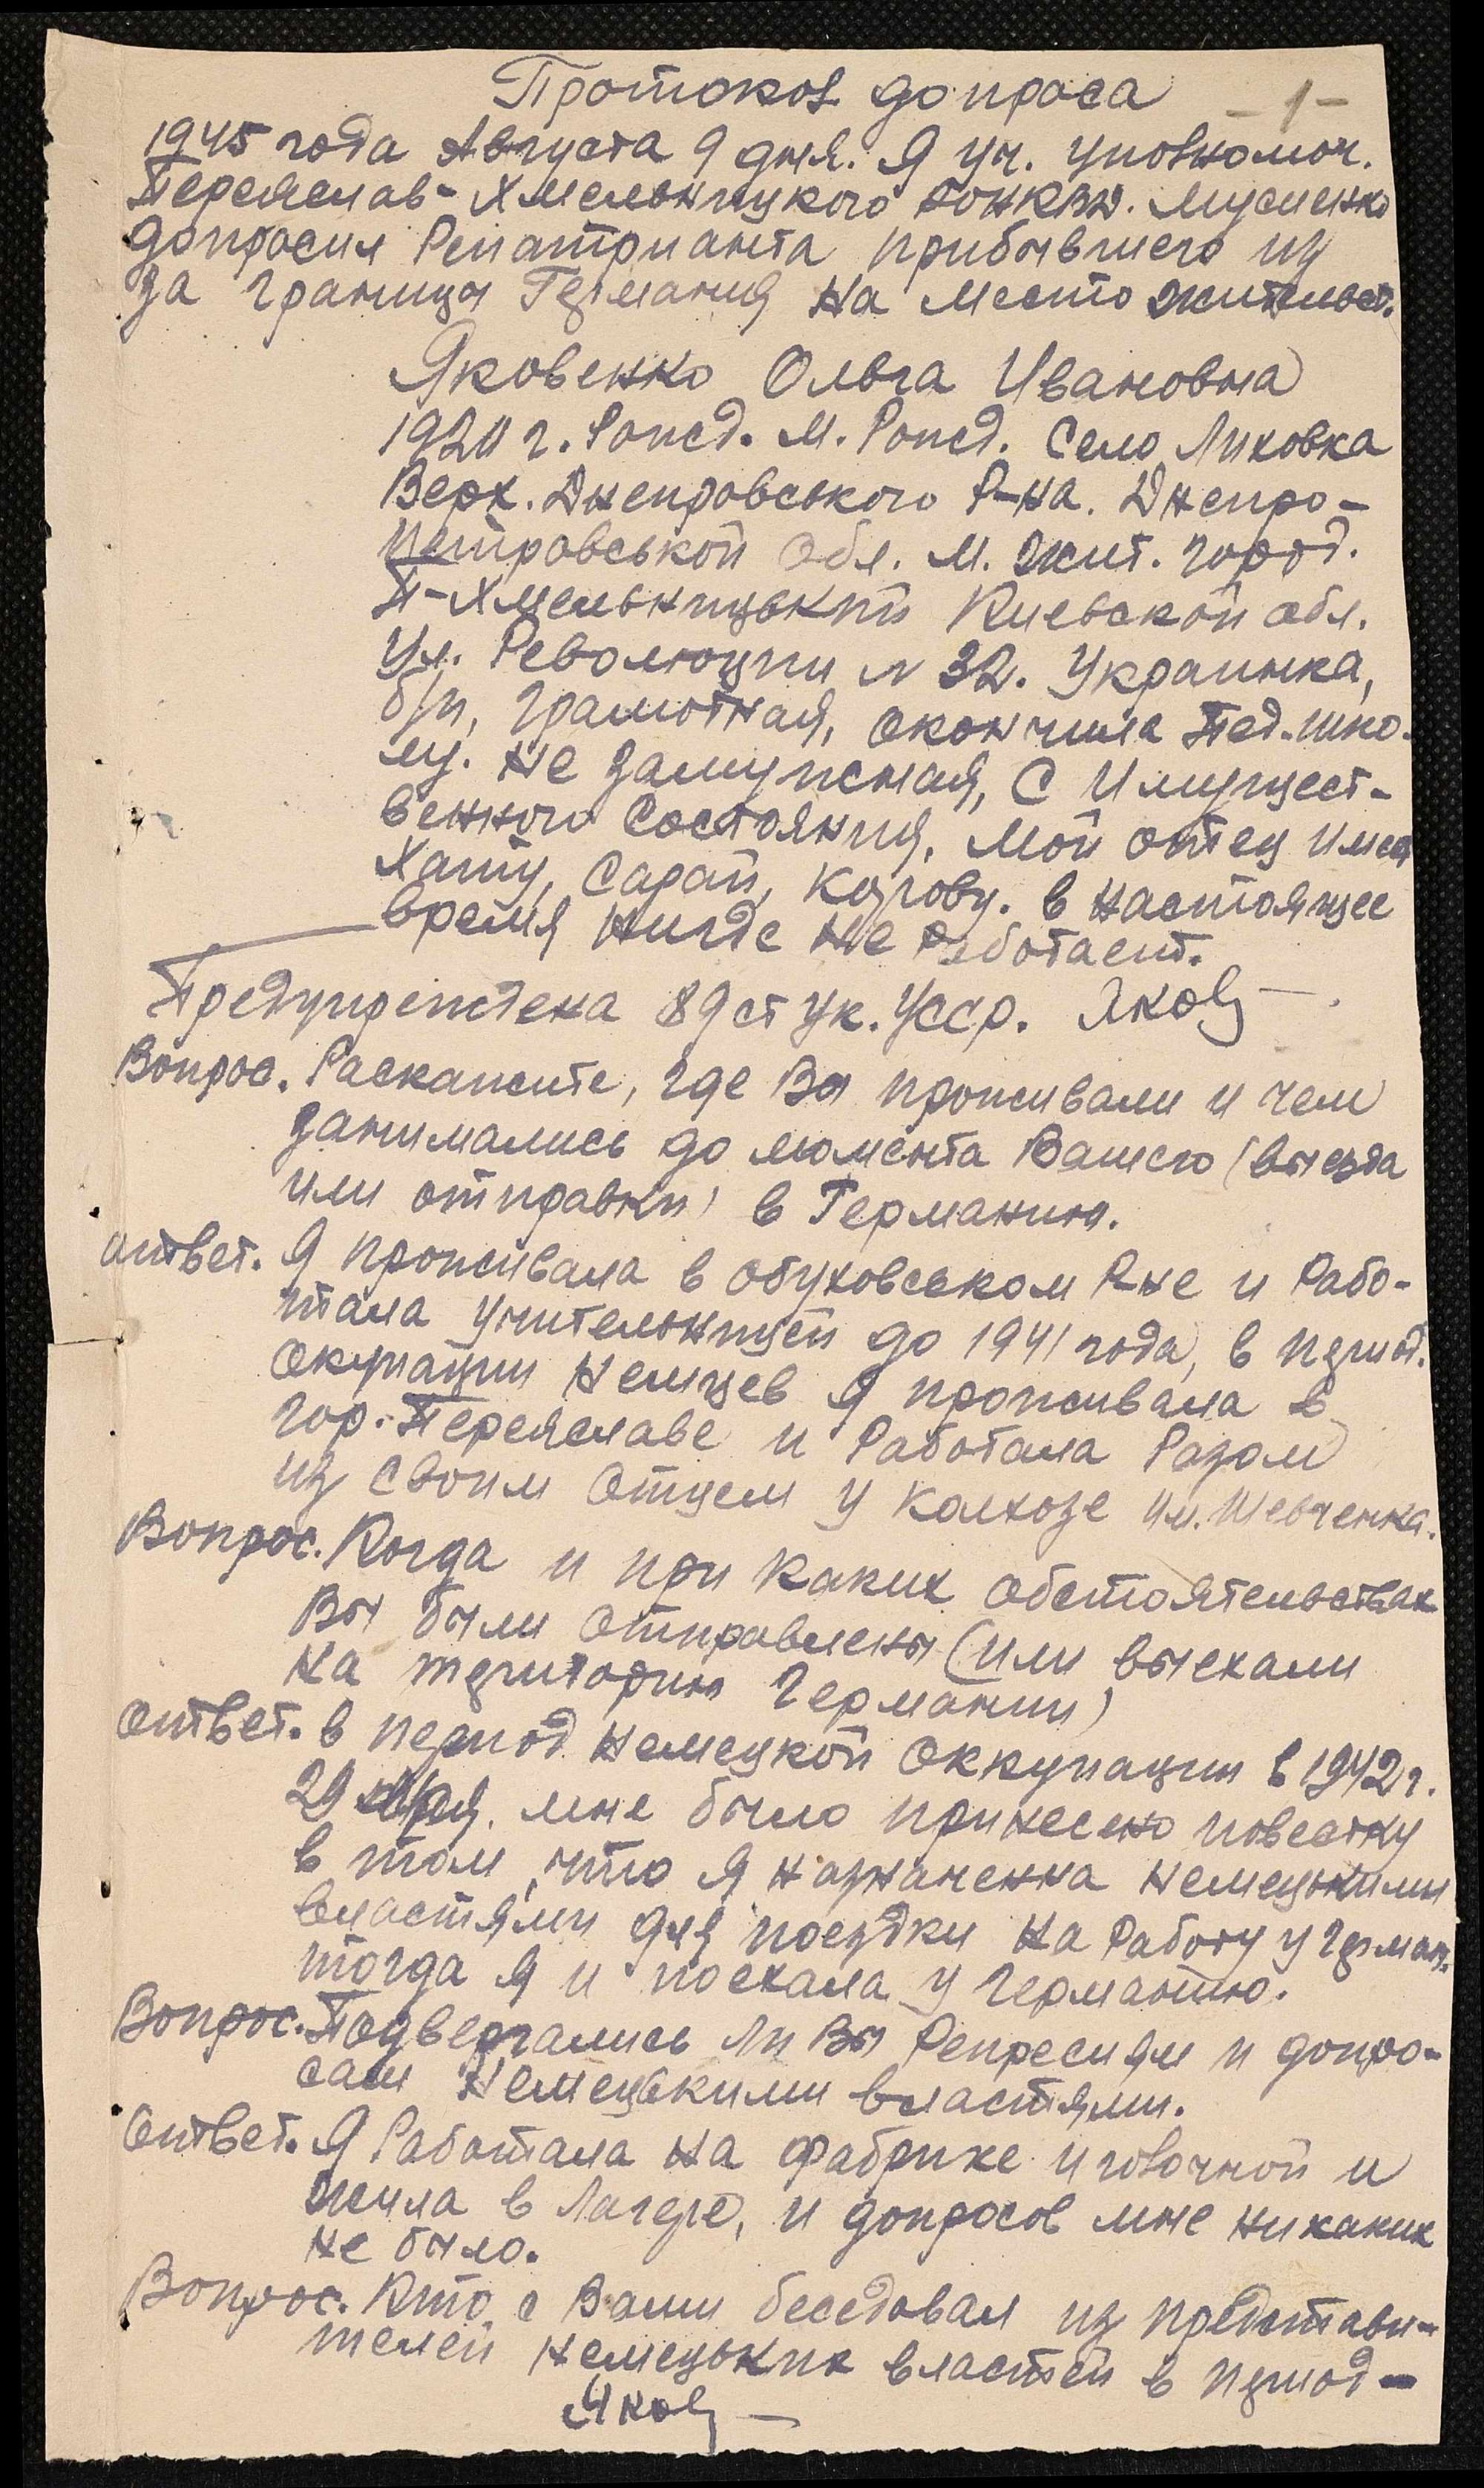 Протокол допроса
-1-
1945 года Августа 9 дня. Я уч. уполномоч.
Переяслав-Хмельницкого НКВД. Мусиенко
допросил Репатрианта прибывшего из
за границы Германия на место жительст.
Яковенко Ольга Ивановна
г. рожд. М. Рожд. Село Лиховка
Верх. Днепровського Р-на. Днепро-
петровськой Обл. М. жит. город.
П-Хмельницький Киевской обл.
Ул. Революции N 32. Украинка,
б/п, грамотная, окончила Пед. шко-
лу. Не замужная, С Имущест-
венного Состояния, мой отец имеет
Хату, Сарай, Корову. в настоящее
время нигде не работает.
Предупреждена 89 ст Ук. Усср. Яков
Вопрос. Раскажите, где Вы проживали и чем
занимались до момента Вашего (выезда
или отправки) в Германию.
ответ. Я проживала в обуховськом Р-не и Рабо-
тала учительницей до 1941 года, в период.
Окупации Немцев я проживала в
гор. Переяславе и Работала Разом
из своим Отцем у колхозе им. Шевченка.
Вопрос. Когда и при каких обстоятельствах
Вы были отправлены (или выехали
на територию Германии)
Ответ. в период немецкой Оккупации в 1942 г.
29 мне было принесено повестку
в том, что я назначенна немецькими
властями для поездки на Работу у Герман.
тогда я и поехала у Германию.
Вопрос. Подвергались ли Вы Репресиям и допро-
сам Немецькими властями.
Ответ. Я Работала на фабрике иголочной и
жила в Лагере, и допросов мне никаких
не было.
Вопрос. Кто с Вами беседовал из представи-
телей немецьких властей в период-
Яков